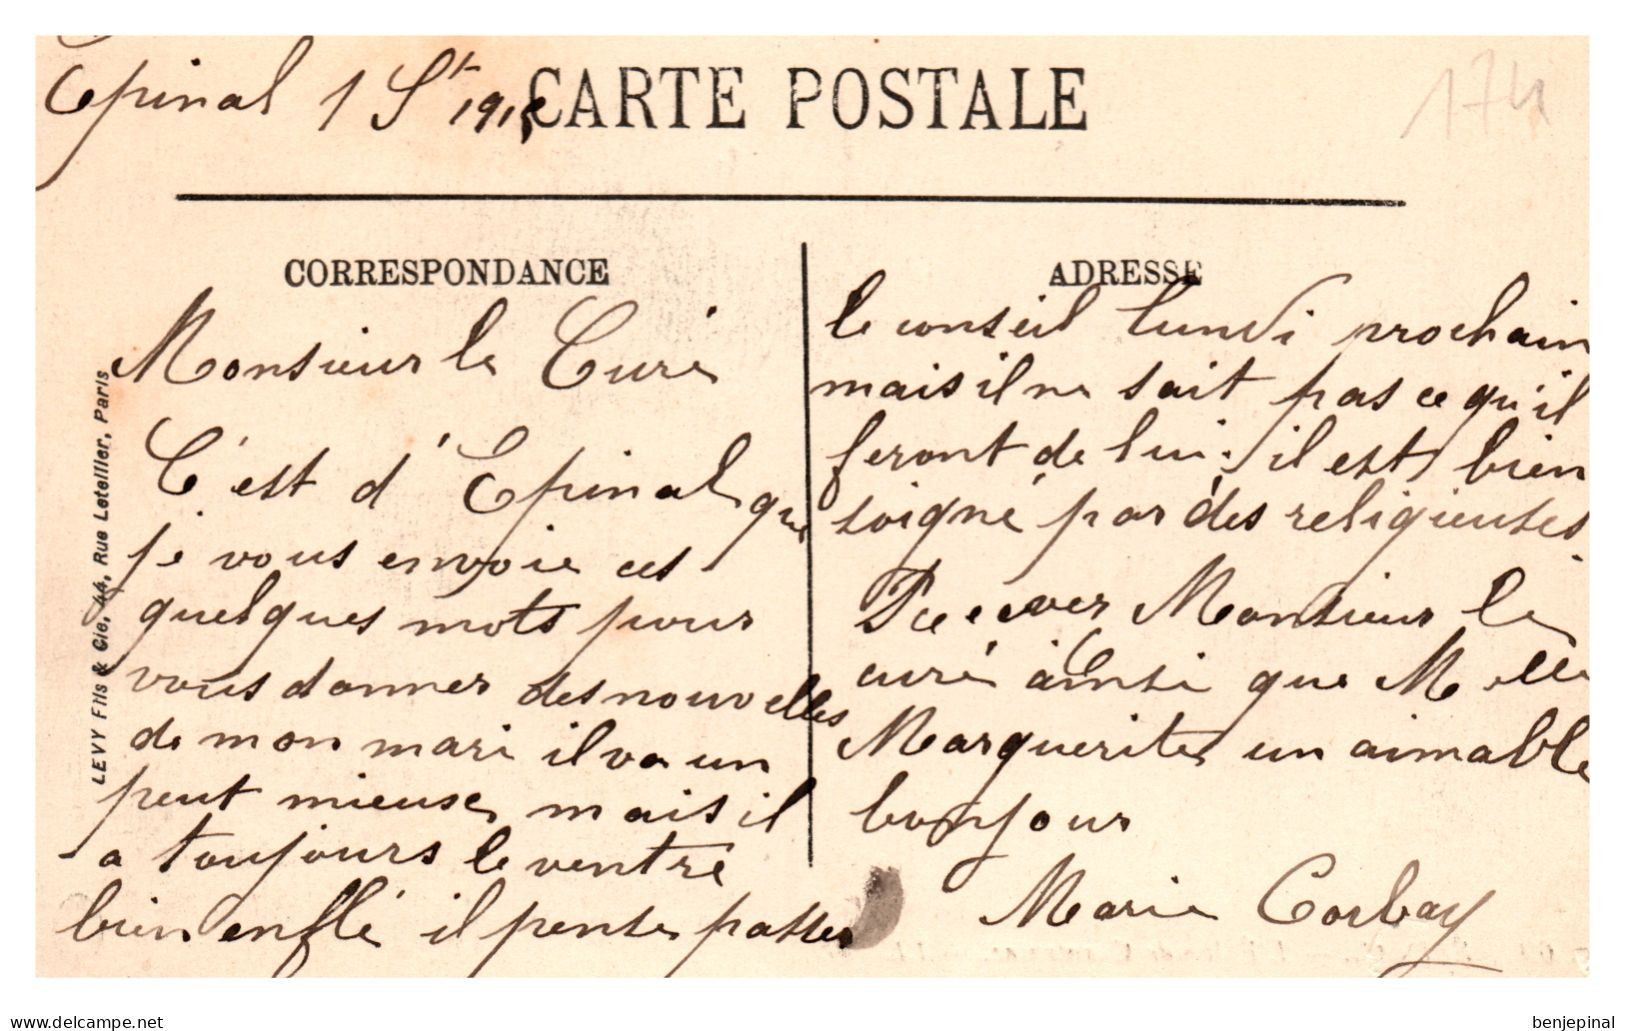 Epinal 1 St 1915
CARTE POSTALE
174
CORRESPONDANCE
Monsieur le Curé
C'est d'Epinal que
je vous envoie ces
quelques mots pour
vous donner des nouvelles
de mon mari il va un
peut mieuse mais il
a toujours le ventre
bien enflé il pense passer
LEVY Fils & Cie, 44, Rue Letellier, Paris
ADRESSE
le conseil lundi prochain
mais il ne sait pas ce qu'il
feront de lui. il est bien
soigné par des religieuses.
Recever Monsieur le
curé ainsi que Melle
Marguerite un aimable
bonjour
Marie Corbay
benjepinal
www.delcampe.net